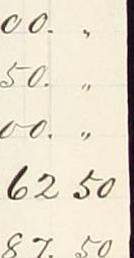 00. "
50. "
00. "
62 50
87. 50